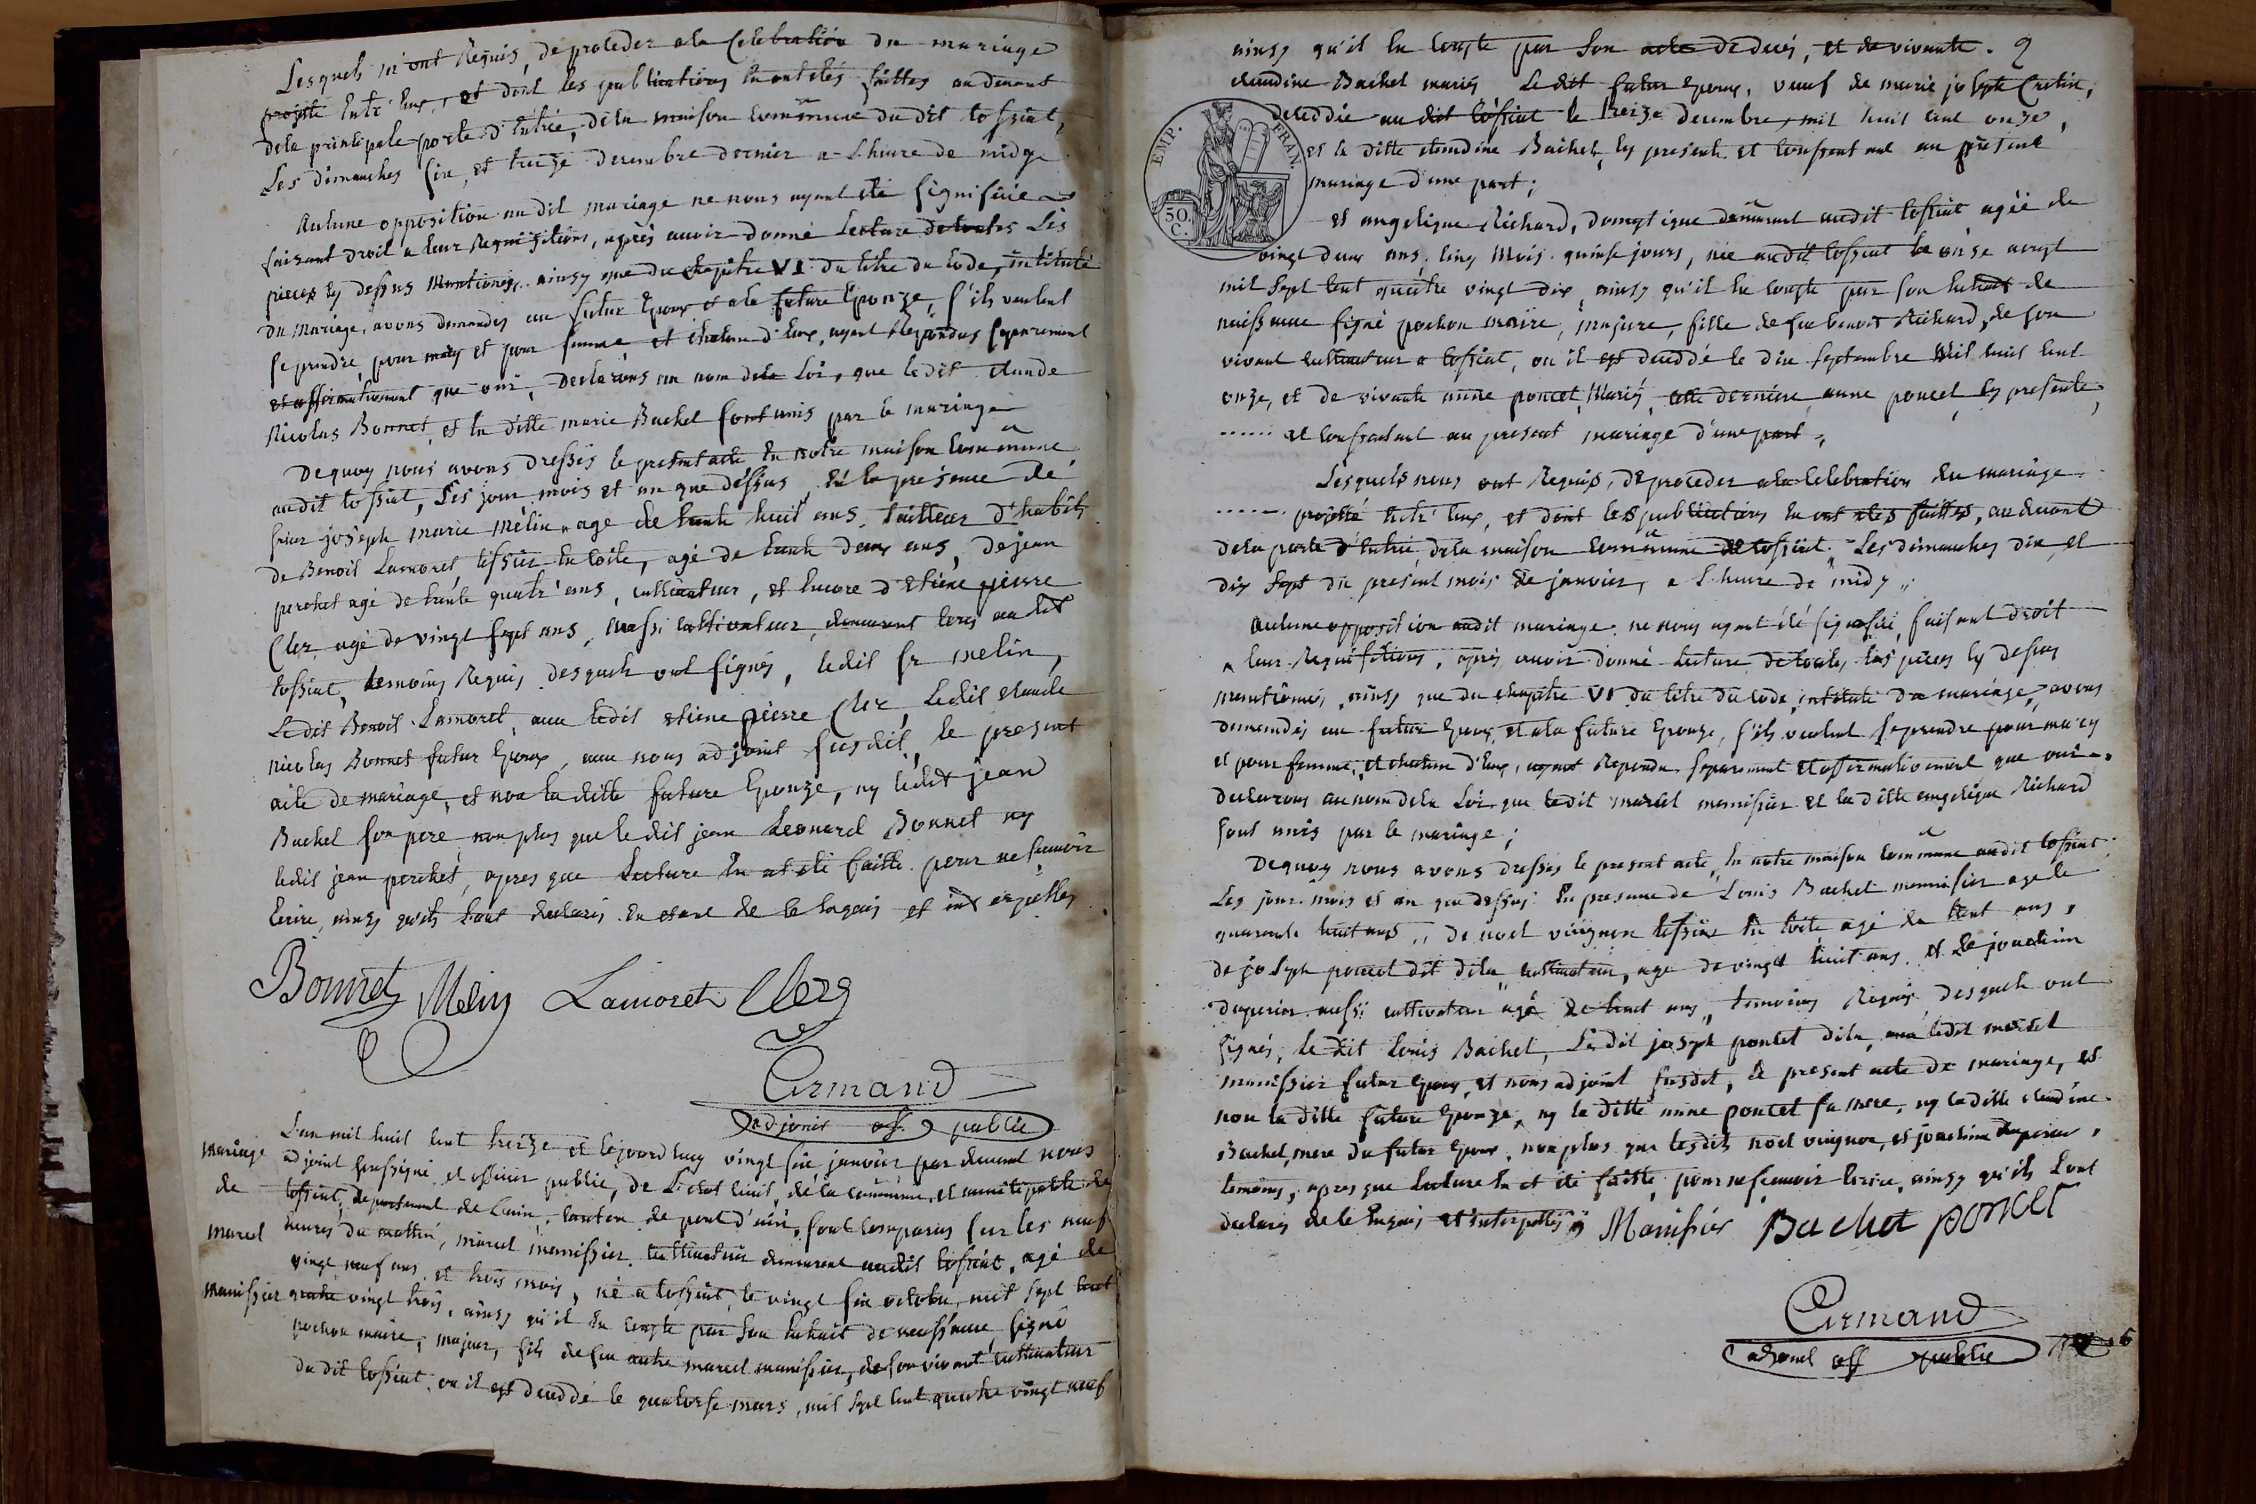 Lesquels m'ont Requis, de proceder a la Celebration du mariage
projetté entr'eux, et dont les publications en ont etés faittes au devant
dela principale porte d'Entrée, dela maison commune du dit tossiat,
Les dimanches six, et treize decembre dernier a L'heure de midy
Aucune opposition au dit mariage ne nous ayant eté signifiée
faisant droit a leur Requisitions, après avoir donné Lecture de toutes Les
pieces cy dessus Mentionés, ainsy que du chapitre VI du titre du Code, intitulé
du Mariage, avons demandés au futur Epoux et a la future Epouze, s'ils veulent
se prendre pour mary et pour femme et chacun d'Eux, ayant Repondus separement
et affirmativement que oui, Declarons au nom dela Loi, que le dit Claude
Nicolas Bonnet, et la ditte marie Bachel sont unis par le mariage
De quoy nous avons dressés le present acte En notre maison commune
audit tossiat, Les jour mois et an que dessus, En la présence de
sieur joseph marie mélin, agé de trente huit ans, tailleur d'habits
de Benoit Lamoret, tissier En toile, agé de trente deux ans, de jean
perchet agé de trente quatr'ans, cultivateur, et Encore d'Etiene pierre
Clerg agé de vingt sept ans, aussi cultivateur, demeurant tous au dit
tossiat, temoins Requis desquels ont signés, le dit sr melin,
Le dit Benoit Lamoret, avec le dit etiene pierre Clerc, Le dit Claude
nicolas Bonnet futur Epoux, avec nous adjoint susdit, le present
acte de mariage, et non la ditte future Epouze, ny le dit jean
Bachel son pere non plus que le dit jean Leonard Bonnet ny
le dit jean perchet, apres que Lecture En at eté faitte pour ne sçavoir
Ecrire, ainsy qu'ils L'ont declarés En etant de ce Enquis et int erpellés
Bonnet Melin Lamoret Clerg
Ermand
adjoint off. public
mariage
de
marcel
manissier
L'an mil huit cent treize et le jourd'huy vingt six janvier par devant nous
adjoint soussigné et officier public, de L'etat civil, de la commune, et municipalité de
tossiat, departement de L'ain, canton de pont d'ain, sont comparus sur les neuf
heures du mattin, marcel manissier cultivateur demeurant audit tossiat, agé de
vingt neuf ans et trois mois, né a tossiat, le vingt six octobre, mil sept cent
quatre vingt trois, ainsy qu'il En conste par son Extrait de naissance signé
pochon maire, majeur, fils de feu autre marcel manissier, de son vivant cultivateur
du dit tossiat, ou il est deceddé le quatorse mars, mil sept cent quatre vingt neuf
ainsy qu'il En conste par son acte de deces, et de vivante. 2
claudine Bachel mariés, Le dit futur Epoux, veuf de marie joseph Cretin,
deceddée au dit tossiat le treize decembre, mil huit cent onze,
et la ditte claudine Bachel, cy presente et consentant au présent
mariage d'une part;
EMP. FRAN.
50. C.
et angelique Richard, domestique demeurant audit tossiat agée de
vingt deux ans, cinq mois quinse jours, née audit tossiat le onse aougt
mil sept cent quattre vingt dix, ainsy qu'il En conste par son Extrait de
naissance signé pochon maire, majeure, fille de feu benoit Richard, de son
vivant cultivateur a tossiat, ou il est deceddé le dix septembre Mil huit cent
onze, et de vivante anne poncet, Mariés, cette derniere anne poncet, cy presente,
...... et consentant au present mariage d'une part,
Lesquels nous ont Requis, de proceder a la Celebration du mariage
...... projetté Entr'Eux, et dont les publications En ont etés faittes, au devant
dela porte d'Entrée dela maison commune de tossiat, Les dimanches dix, et
dix sept du present mois de janvier, a L'heure de midy,,
aucune opposition audit mariage ne nous ayant été signifiée, faisant droit
a leur Requisitions, après avoir donné Lecture de toutes les pieces cy dessus
mentionnés, ainsy que du chapitre VI du titre du Code, intitulé du mariage, avons
demandés au futur Epoux, et a la future Epouze, s'ils veulent se prendre pour mary
et pour femme, et chacun d'Eux, ayant Repondu separement et affirmativement que oui,
declarons au nom dela Loi que le dit marcel manissier et la ditte angelique Richard
sont unis par le mariage;
De quoy nous avons dressés le present acte, En notre maison commune audit tossiat,
Les jour mois et an que dessus. En presence de Louis Bachet mennisier agé de
quarante huit ans,, de noel voignon tissier En toile agé de trent ans,
de joseph poncet dit dila cultivateur, agé de vingt huit ans, et de joachim
duperier aussi cultivateur agé de trent ans, temoins Requis desquels ont
signés, le dit Louis Bachet, Le dit joseph poncet dila, avec ledit marcel
manissier futur Epoux, et nous adjoint susdit, le present acte de mariage, et
non la ditte future Epouze, ny la ditte anne poncet sa mere, ny la ditte claudine
Bachel, mere du futur Epoux, non plus que lesdits noel voignon, et joachim duperier,
temoins, apres que Lecture En at été faitte, pour ne sçavoir Ecrire, ainsy qu'ils L'ont
declarés de ce Enquis et interpellés,, Manissier Bachet poncet
Ermand
adjoint off public